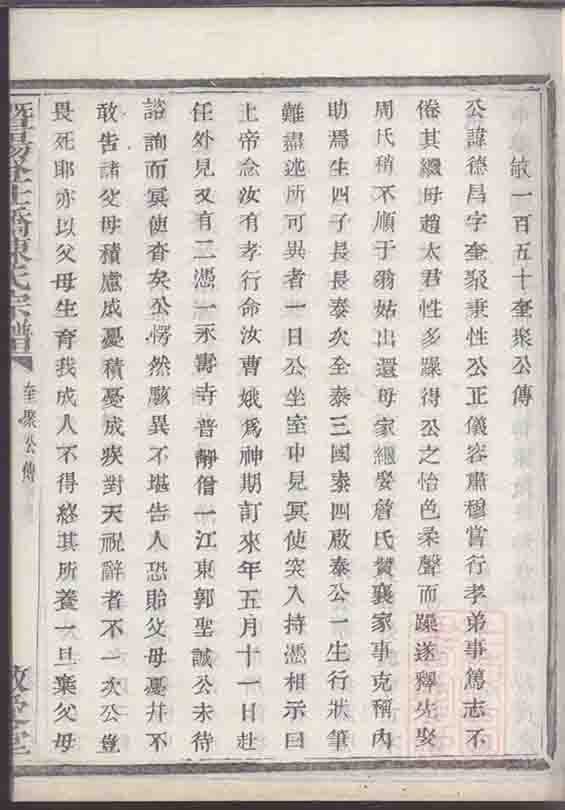 敏一百五十奎聚公傳
公諱德昌字奎聚秉性公正儀容肅穆嘗行孝弟事篤志不
倦其繼母趙太君性多躁得公之怡色柔聲而躁遂釋先娶
周氏稍不順于翁姑出還母家繼娶詹氏贊襄家事克稱內
助焉生四子長長泰次全泰三國泰四啟泰公一生行狀筆
難盡述所可異者一日公坐室中見冥使突入持憑相示曰
上帝念汝有孝行命汝曹娥為神期訂來年五月十一日赴
任外見又有二憑一永壽寺普靜僧一江東郭聖誠公未待
諮詢而冥使杳矣公愕然駭異不堪告人恐貽父母憂并不
敢告諸父母積慮成憂積憂成疾對天祝辭者不一次公豈
畏死耶亦以父母生育我成人不得終其所養一旦棄父母
陳氏宗譜
奎聚公傳
敬堂